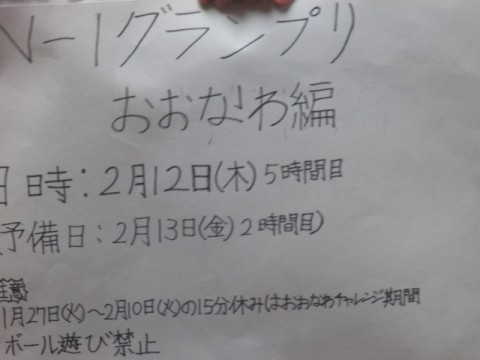 N-1グランプリ
おおなわ編
日時:2月12日(木)5時間目
(予備日:2月13日(金)2時間目)
注意
1月27日(火)~2月10日(火)の15分休みはおおなわチャレンジ期間
ボール遊び禁止